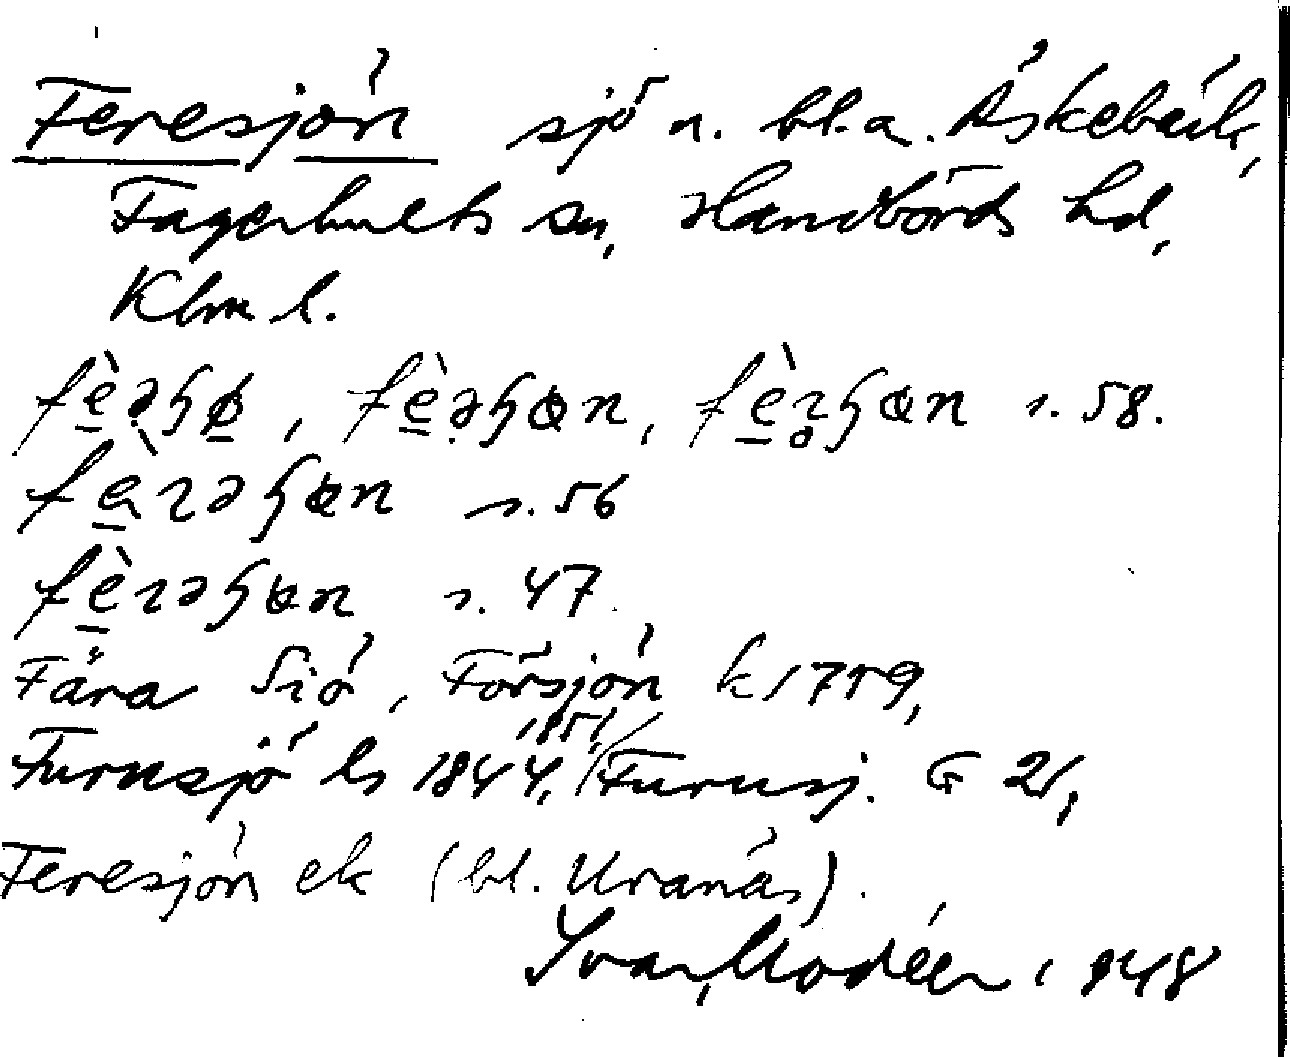 Feresjön sjö n. bl.a. Åskebäck,
Fagerhults sn, Handbörds hd,
Klm l.
fè̱əɧø̱, fè̱əɧɵn, fè̱rɧɵn s. 58.
fè̱rəɧɵn s. 56
fè̱rəɧɵn s. 47.
Fära Siö, Försjön k 1759,
Furusjö ls 1844, 1851, Furusj. G 21,
Feresjön ek (bl. Uranäs).
Ivar Modéer 1948